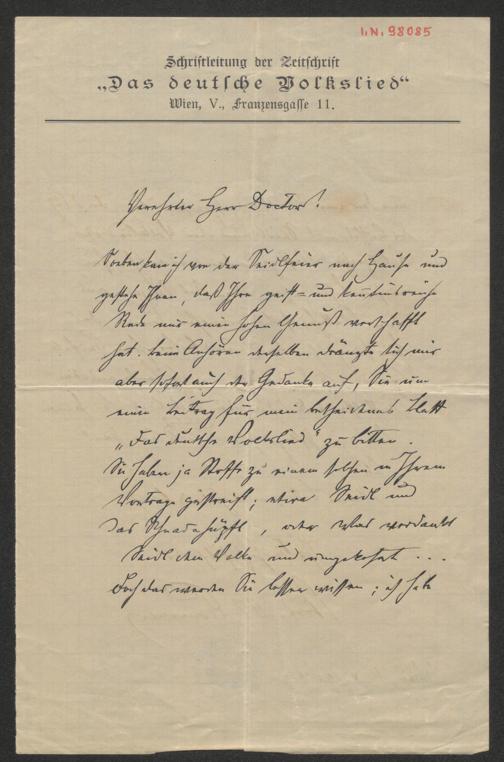 I.N. 98085
Schriftleitung der Zeitschrift
„Das deutsche Volkslied“
Wien, V., Franzensgasse 11.
Verehrter Herr Doctor!
Soeben kam ich von der Seidlfeier nach Hause und
gestehe Ihnen, daß Ihre geist- und kenntnisreiche
Rede mir einen hohen Genuß verschafft
hat. Beim Anhören derselben drängte sich mir
aber sofort auch der Gedanke auf, Sie um
einen Beitrag für mein bescheidenes Blatt
„Das deutsche Volkslied“ zu bitten.
Sie haben ja Stoffe zu einem solchen in Ihrem
Vortrage gestreift; etwa Seidl und
das Schnadahüpfl, oder Was verdankt
Seidl dem Volke und umgekehrt...
Doch das werden Sie besser wissen; ich habe